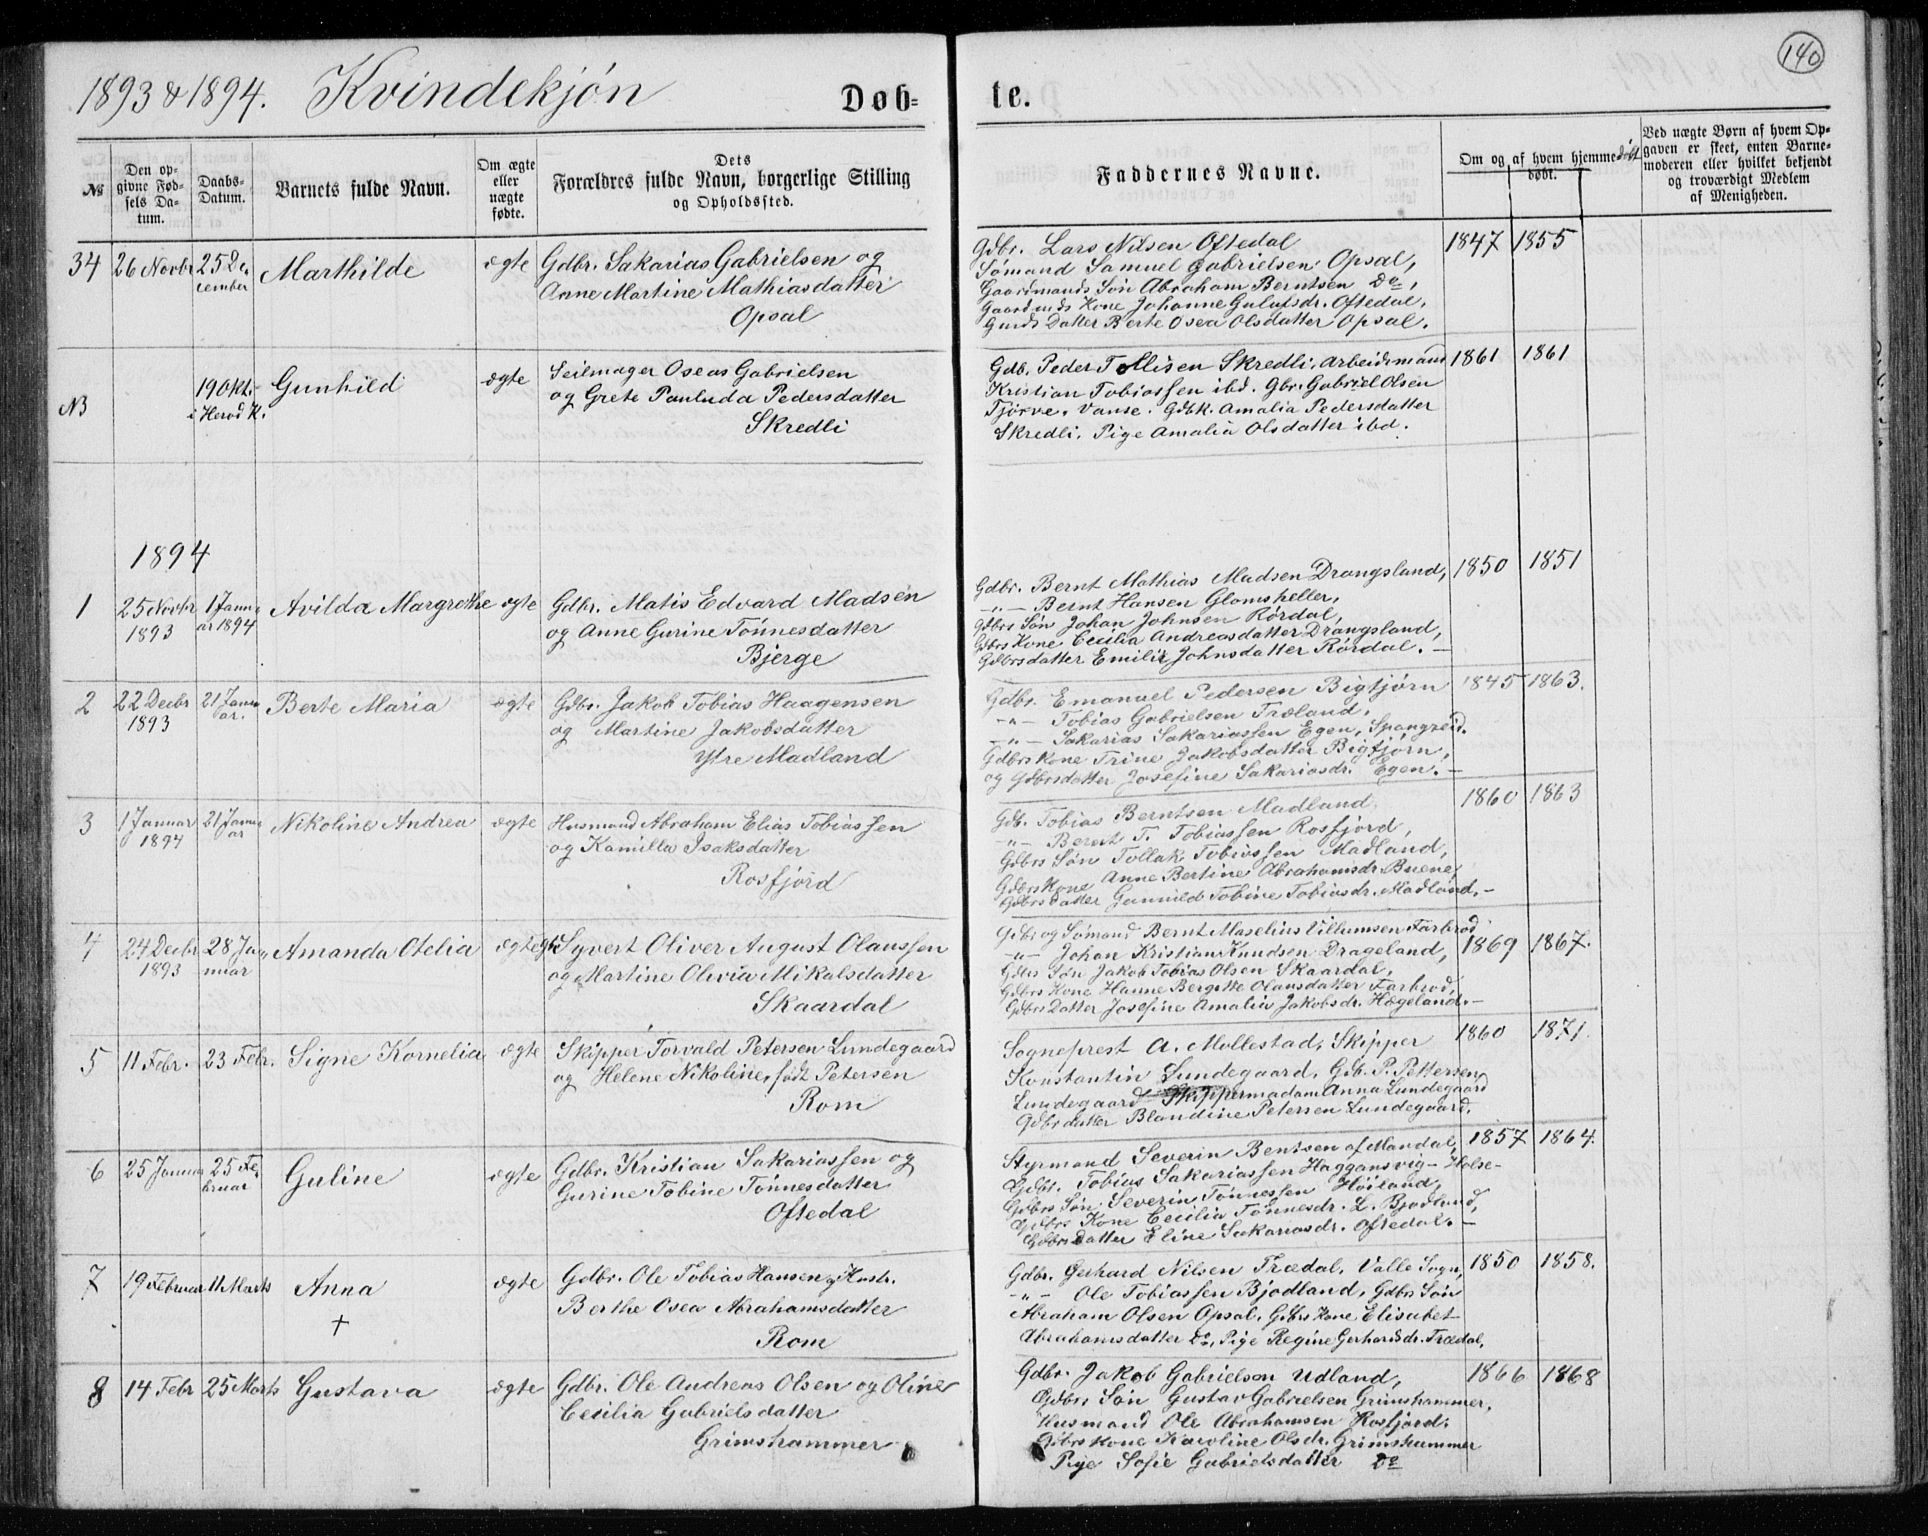 140
1893 & 1894. Kvindekjøn Døb= te.
№
Den op-
givne Fød-
sels Da-
tum.
Daabs-
Datum.
Barnets fulde Navn.
Om ægte
eller
uægte
fødte.
Dets
Forældres fulde Navn, borgerlige Stilling
og Opholdssted.
Faddernes Navne.
Om og af hvem hjemmedøbt
døbt.
Ved uægte Børn af hvem Op-
gaven er skeet, enten Barne-
moderen eller hvilket bekjendt
og troværdigt Medlem
af Menigheden.
34
26 Novbr
25 De-
cember
Marthilde
ægte
Gdbr. Sakarias Gabrielsen og
Anne Martine Mathiasdatter
Opsal
Gdbr. Lars Nilsen Oftedal
Sømand Samuel Gabrielsen Opsal,
Gaardmands Søn Abraham Berntsen Do,
Gaardmds Kone Johanne Gulufsdr. Oftedal,
Gmds Datter Berte Osea Olsdatter Opsal.
1847
1855
NB
19 Okt.
i Herod K.
Gunhild
ægte
Seilmager Oseas Gabrielsen
og Grete Pauluda Pedersdatter
Skredli
Gdb. Peder Tollisen Skredli, Arbeidsmand
Kristian Tobiassen ibd. Gbr. Gabriel Olsen
Tjörve, Vanse. Gdbk. Amalia Pedersdatter
Skredli, Pige Amalia Olsdatter ibd.
1861
1861
1894
1
25 Novbr
1893
1 Janu-
ar 1894
Avilda Margrethe
ægte
Gdbr. Matis Edvard Madsen
og Anne Gurine Tønnesdatter
Bjerge
Gdbr. Bernt Mathias Madsen Drangsland,
-"- Bernt Hansen Glomsheller,
Gdbrs Søn Johan Johnsen Rørdal,
Gdbrs Kone Cecilia Andreasdatter Drangsland,
Gdbrsdatter Emilie Johnsdatter Rørdal. -
1850
1851
2
22 Decbr
1893
21 Janu-
ar.
Berte Maria
ægte
Gdbr. Jakob Tobias Haagensen
og Martine Jakobsdatter
Ytre Madland
Gdbr. Emanuel Pedersen Bigtjørn
-"- Tobias Gabrielsen Træland,
-"- Sakarias Sakariassen Egen, Spangreid.
Gdbrs Kone Trine Jakobsdatter Bigtjørn,
og Gdbrsdatter Josefine Sakariasdr. Egen. -
1845
1863.
3
1 Januar
1894
21 Janu-
ar
Nikoline Andrea
ægte
Husmand Abraham Elias Tobiassen
og Kamilla Isaksdatter
Rosfjord
Gdb. Tobias Berntsen Madland,
-"- Berent T. Tobiassen Rosfjord,
Gdbrs Søn Tollak Tobiassen Madland,
Gdbrs Kone Anne Bertine Abrahamsdr. Buene
Gdbrs datter Gunnild Tobine Tobiasdr. Madland. -
1860
1863
4
24 Decbr
1893
28 Ja-
nuar
Amanda Otelia
ægte
Syvert Oliver August Olaussen
og Martine Olivia Mikalsdatter
Skaardal
Gdbr og Sømand Bernt Maselius Villumsen Farbrod
-"- Johan Kristian Knudsen Drageland,
Gdbrs Søn Jakob Tobias Olsen Skaardal,
Gdbrs Kone Hanne Bergitte Olausdatter Farbrod,
Gdbrs Datter Josefine Amalia Jakobsdr. Hægeland. -
1869
1867.
5
11 Febr.
23 Febr.
Signe Kornelia
ægte
Skipper Torvald Petersen Lundegaard
og Helene Nikoline, født Petersen
Rom
Sogneprest A. Mollestad, Skipper
Konstantin Lundegaard, Gdb. P. Pettersen
Lundegaard Skippermadam Anna Lundegaard
Gdbrdatter Blandine Petersen Lundegaard.
1860
1871.
6
25 Januar
25 Fe-
bruar
Guline
ægte
Gdbr. Kristian Sakariassen og
Gurine Tobine Tønnesdatter
Oftedal
Styrmand Severin Bentsen af Mandal,
Gdbr. Tobias Sakariassen Haggansvig - Halse-
Gdbrs Søn Severin Tønnessen Høiland,
Gdbrs Kone Cecilia Tønnesdr. L. Bjødland,
Gdbrsdatter Eline Sakariasdr. Oftedal. -
1857
1864.
7
19 Februar
11 Marts
Anna
+
ægte
Gdbr. Ole Tobias Hansen og Hustr.
Berthe Osea Abrahamsdatter
Rom
Gdbr. Gerhard Nilsen Trædal, Valle Sogn,
-"- Ole Tobiassen Bjødland, Gdbrs Søn
Abraham Olsen Opsal, Gdbrs Kone Elisabet
Abrahamsdatter Do, Pige Regine Gerhardsdr. Trædal,
1850
1858.
8
14 Febr
25 Marts
Gustava
ægte
Gdbr. Ole Andreas Olsen og Oline
Cecilia Gabrielsdatter
Grimshammer
Gdbr. Jakob Gabrielsen Udland,
Gdbrs Søn Gustav Gabrielsen Grimshammer,
Husmand Ole Abrahamsen Rosfjord,
Gdbrs Kone Karoline Olsdr. Grimshammer
Pige Sofie Gabrielsdatter Do
1866
1868